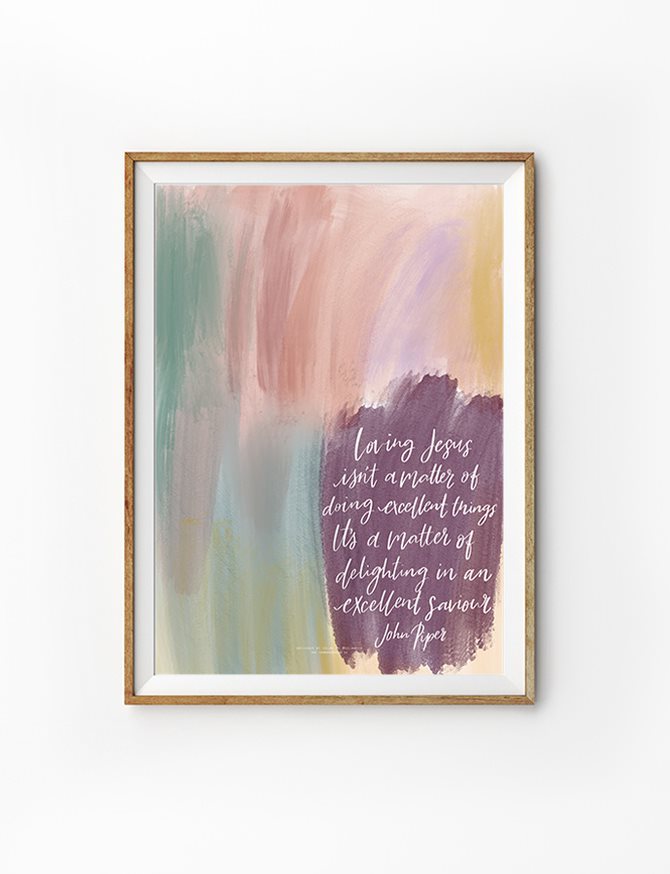 Loving Jesus
isn't a matter of
doing excellent things
It's a matter of
delighting in an
excellent saviour
John Piper